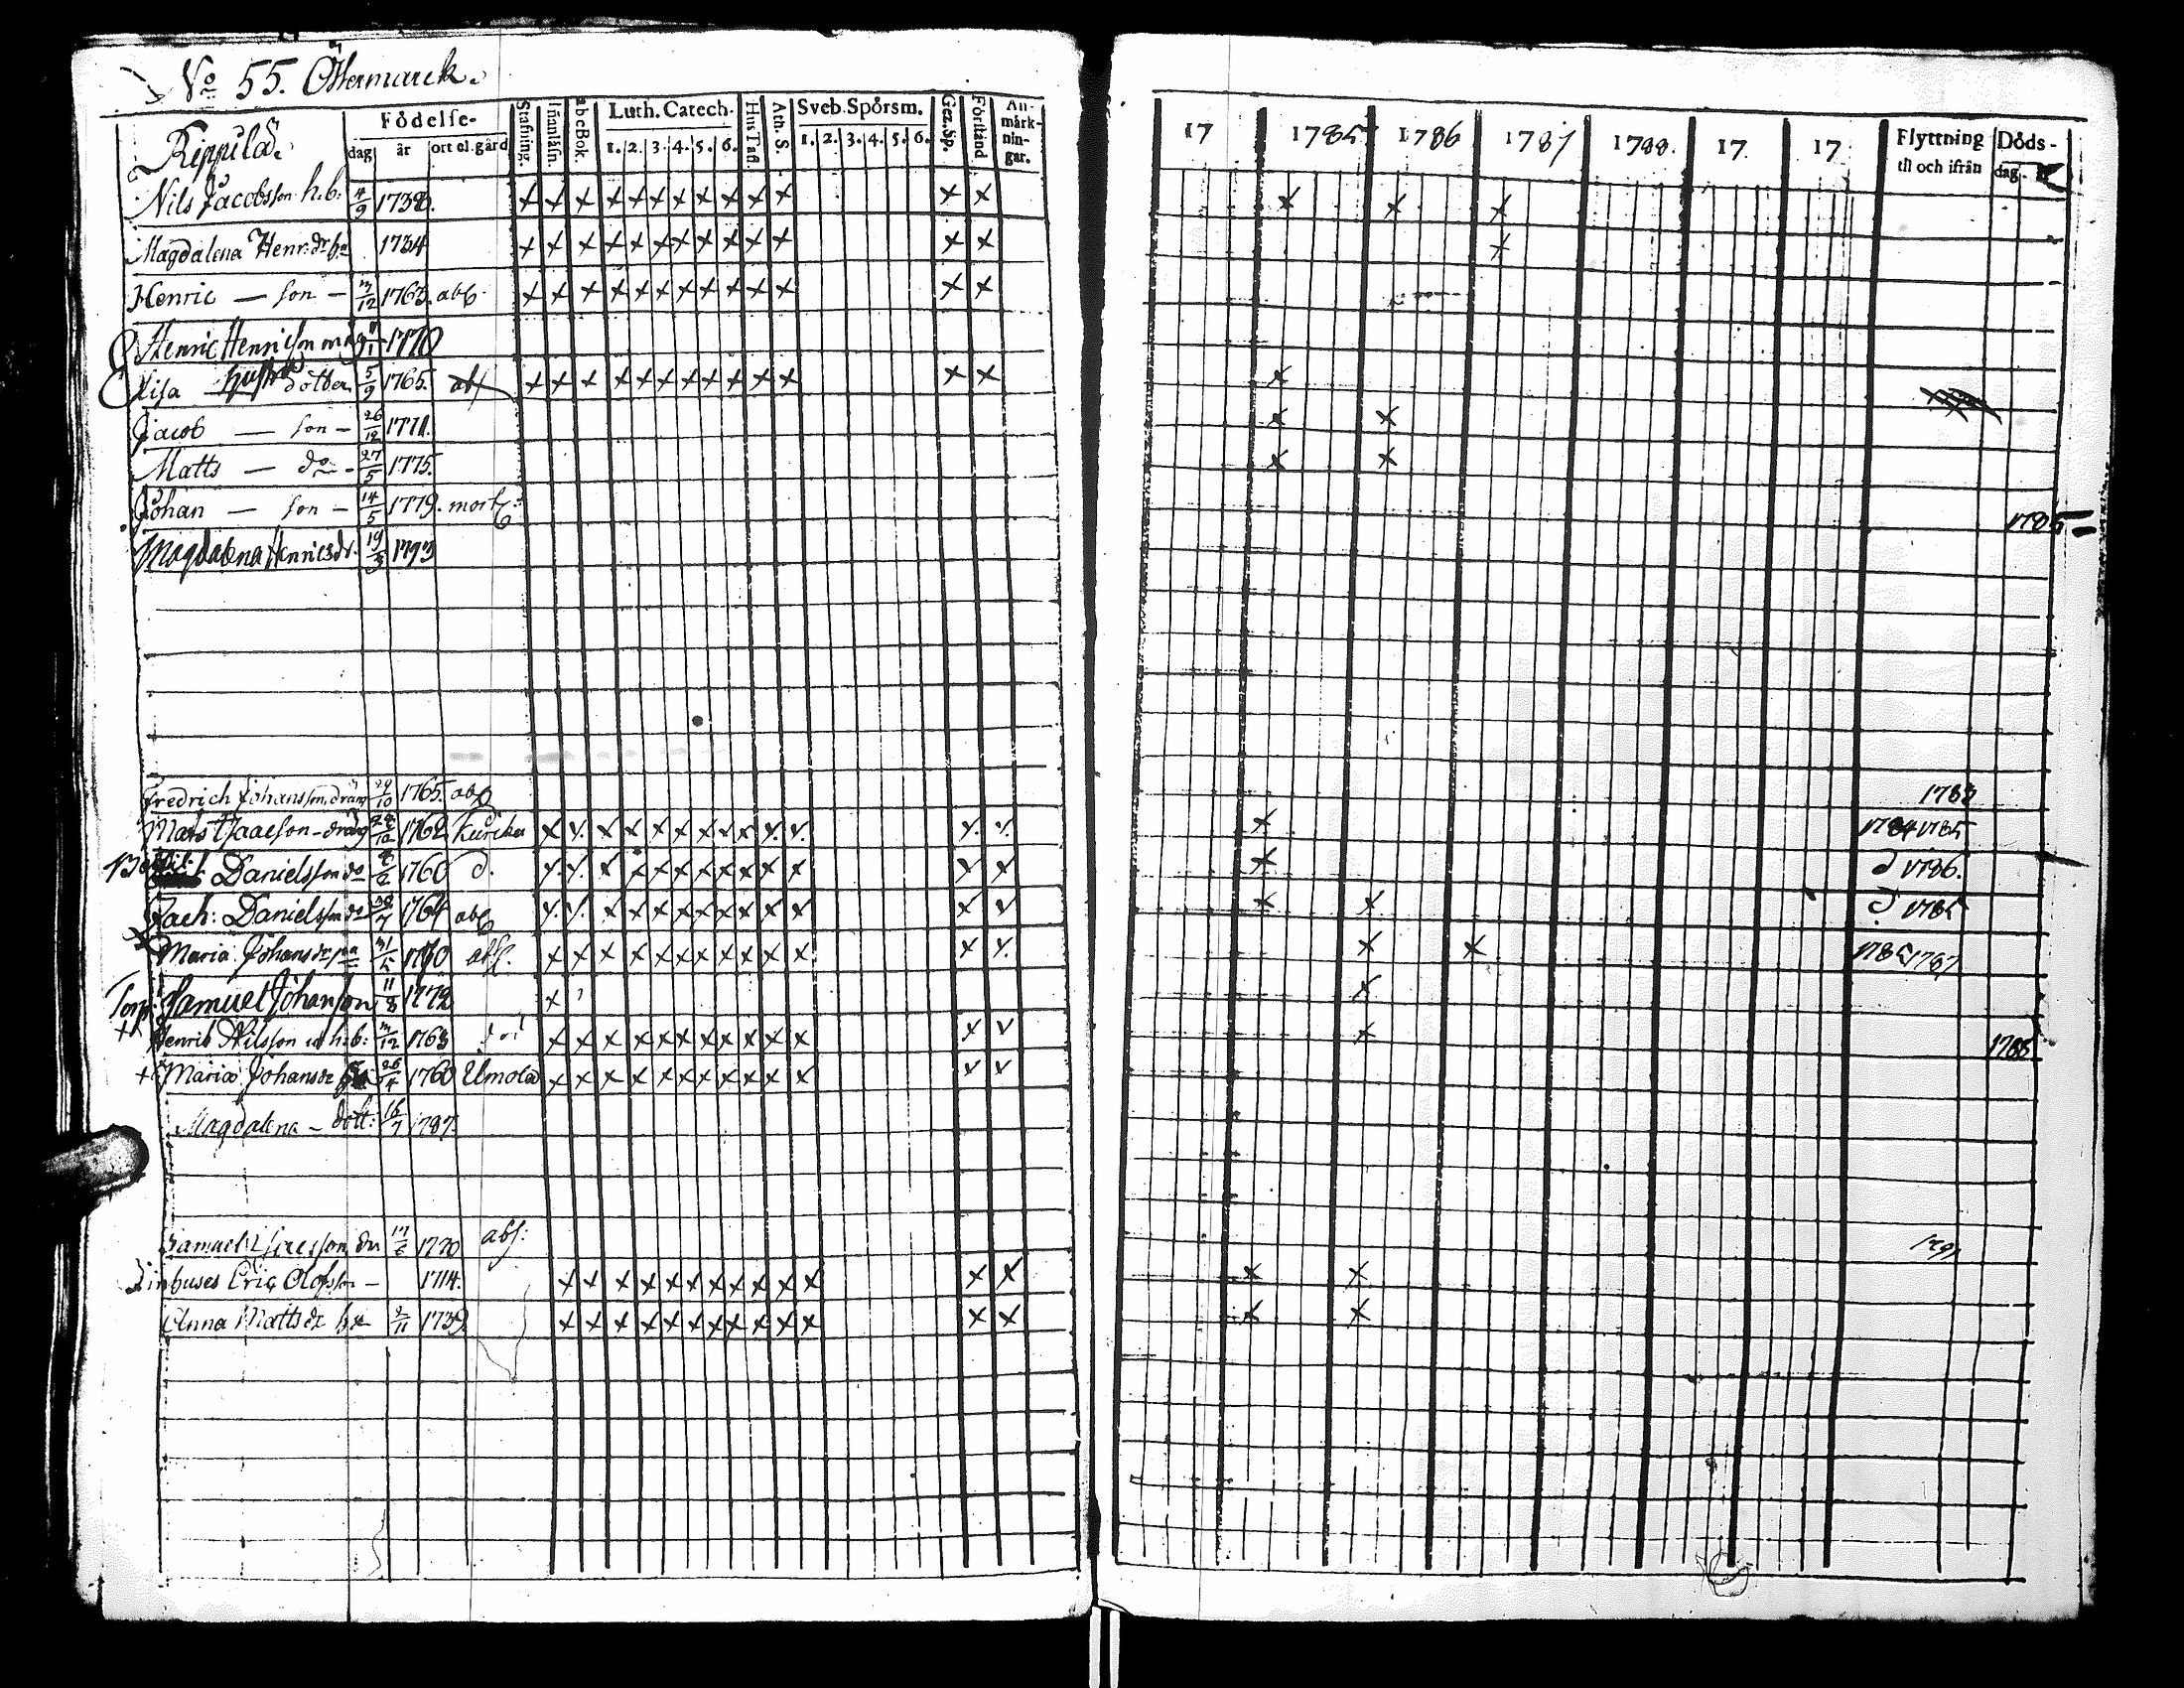 No 55. Ötermarck.
Rippila.
Födelse-
dag år ort el. gård
Stafning.
Iñanläsn.
abcBok.
Luth. Catech.
1. 2. 3. 4. 5. 6.
Hus Tafl.
Ath. S.
Sveb. Spörsm.
1. 2. 3. 4. 5. 6.
Gez. Sp.
Förstånd
An-
märk-
nin-
gar.
17 1785 1786 1787 1788. 17. 17
Flyttning
til och ifrån
Döds-
dag.
Nils Jacobsson h.b. 4/9 1738. x x x x x x x x x x x x x x x x
Magdalena Henr. dr 1734 x x x x x x x x x x x x x x
Henric — son — 12 1763. abs x x x x x x x x x x x x x
Henric Henricson måg 11/1 1770
Lisa hustru dotter 5/9 1765. abs x x x x x x x x x x x x x x
Jacob — son — 26/12 1771. x x
Matts — do — 27/5 1775. x x
Johan — son — 14/5 1779. mort. 1785
Magdalena Henricsdr. 19/3 1793
Fredrich Johansson, dräng 10 1765. abs 1788
Mats Isaacson - dräng 28/10 1762 x x x x x x x x x x x x x x 1784 1785
Danielsson do 1760 d. x x x x x x x x x x x x x x d 1786.
Zach: Danielsson dr 7 1764 abs x x x x x x x x x x x x x x x d 1785
Maria Johansdr pa 31/5 1760 abs. x x x x x x x x x x x x x x x 1785 1787
Torp. Samuel Johansson 11/8 1772 x x
+ Henric Nilsson h.b: 12 1763 x x x x x x x x x x x x x x 1788
+ Maria Johansdr 26/4 1760 Umola x x x x x x x x x x x x x
Magdalena — dott: 16/7 1787.
Samuel dr 17/6 1770 abs: 1791
Inhuses Eric Olofsson — 1714. x x x x x x x x x x x x x x x
Anna Mattsdr 2/11 1739 x x x x x x x x x x x x x x x